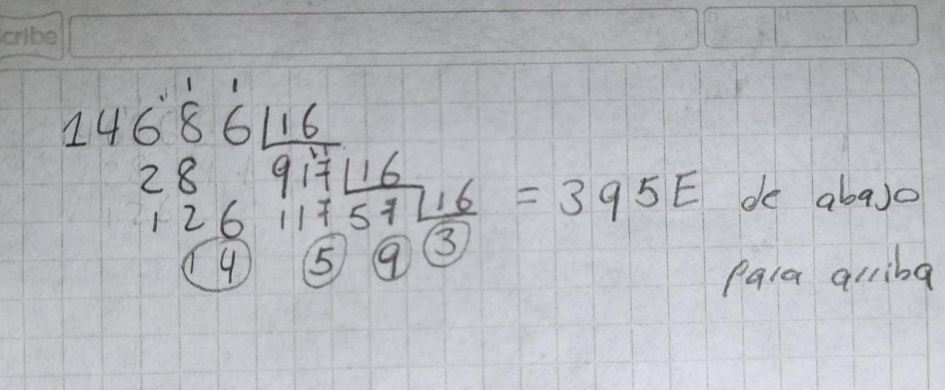 cribe
14686 16
28 917 16
126 117 57 16 = 395E de abajo
14 5 9 3 para arriba